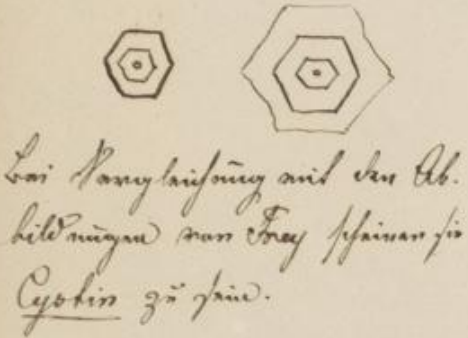 Bei Vergleichung mit den Ab-
bildungen von Frey scheinen sie
Cystin zu sein.